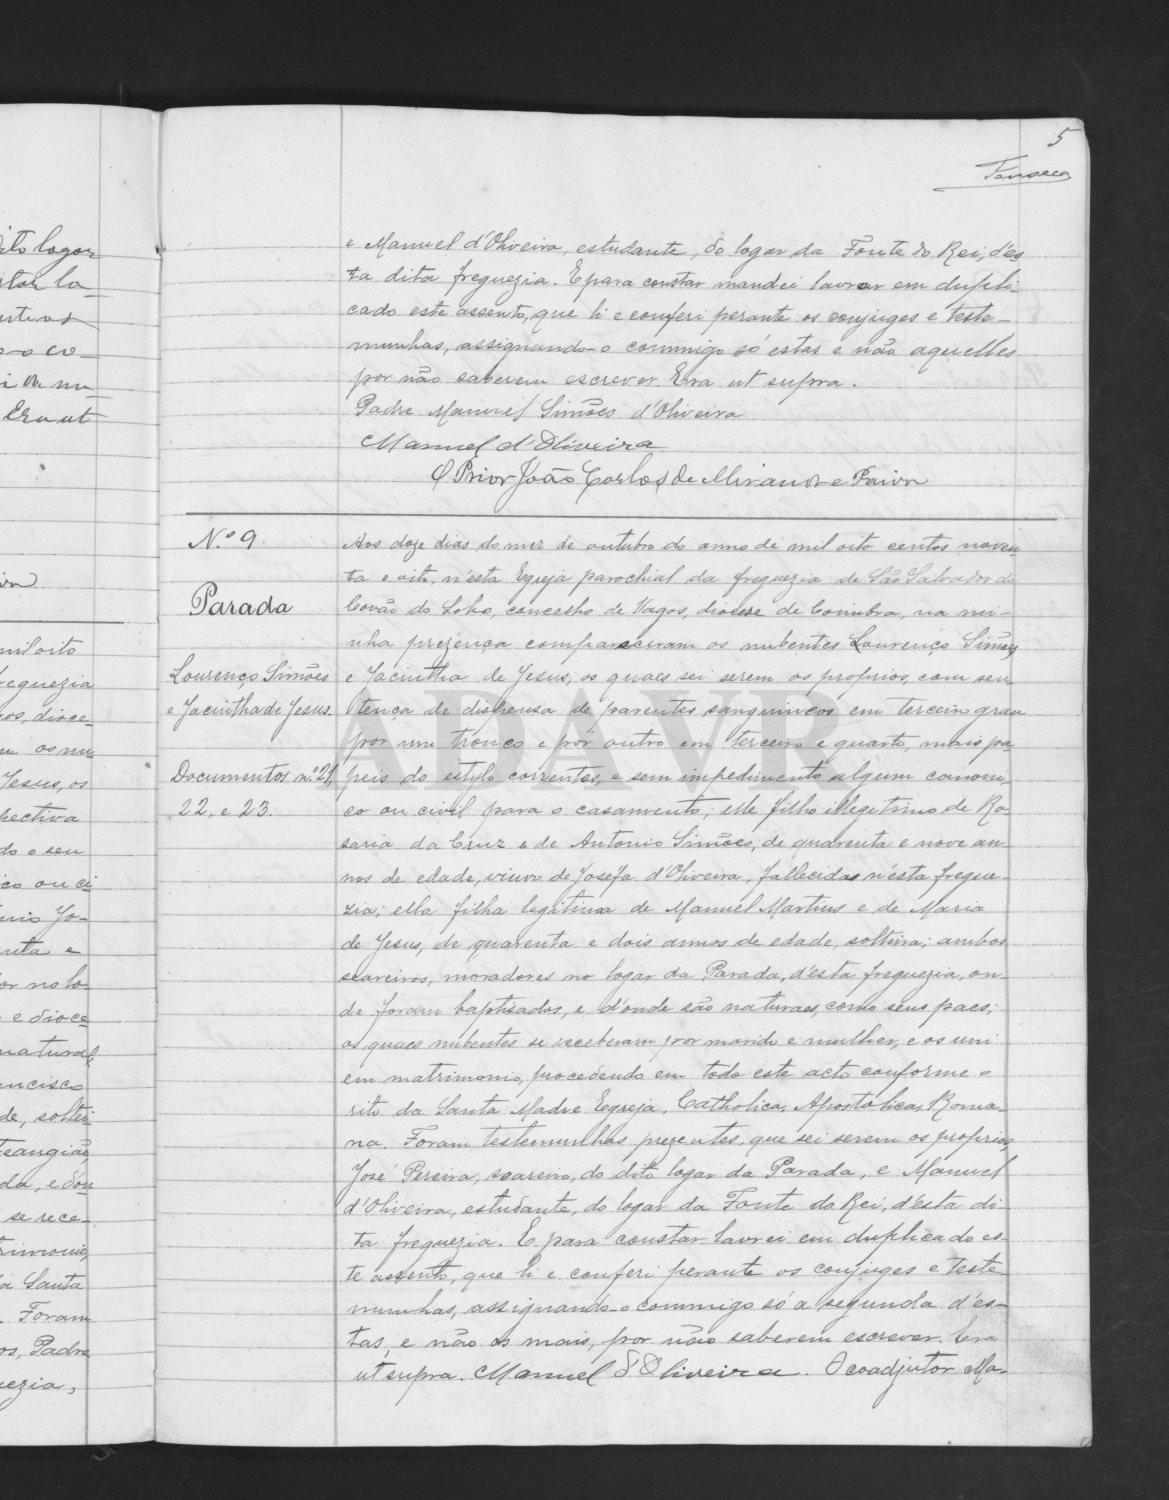 5
Fonseca
e Manuel d'Oliveira, estudante, do logar da Fonte do Rei, d'es
ta dita freguezia. E para constar mandei lavrar em dupli-
cado este assento, que li e conferi perante os conjuges e teste-
munhas, assignando-o commigo só estas e não aquelles
por não saberem escrever. Era ut supra.
Padre Manuel Simões d'Oliveira
Manuel d'Oliveira
O Prior João Carlos de Miranda e Paiva
N.º 9.
Parada
Lourenço Simões
e Jacintha de Jesus.
Documentos n.os 21,
22, e 23.
Aos doze dias do mez de outubro do anno de mil oito centos noven-
ta e oito, n'esta Egreja parochial da freguezia de São Salvador do
Covão do Lobo, concelho de Vagos, diocese de Coimbra, na mi-
nha prezença compareceram os nubentes Lourenço Simões
e Jacintha de Jesus, os quaes sei serem os proprios, com sen-
tença de dispensa de parentes sanguineos em terceiro grau
por um tronco e por outro em terceiro e quarto, mais pa
peis do estylo correntes, e sem impedimento algum canoni-
co ou civil para o casamento; elle filho illegitimo de Ro-
saria da Cruz e de Antonio Simões, de quarenta e nove an-
nos de edade, viuvo de Josefa d'Oliveira, fallecida n'esta fregue-
zia; ella filha legitima de Manuel Martins e de Maria
de Jesus, de quarenta e dois annos de edade, solteira; ambos
seareiros, moradores no logar da Parada, d'esta freguezia, on-
de foram baptisados, e d'onde são naturaes, como seus paes;
os quaes nubentes se receberam por marido e mulher, e os uni
em matrimonio, procedendo em todo este acto conforme o
rito da Santa Madre Egreja, Catholica, Apostolica, Roma-
na. Foram testemunhas prezentes, que sei serem os proprios,
José Pereira, seareiro, do dito logar da Parada, e Manuel
d'Oliveira, estudante, do logar da Fonte do Rei, d'esta di-
ta freguezia. E para constar lavrei em duplicado es-
te assento, que li e conferi perante os conjuges e teste-
munhas, assignando-o commigo só a segunda d'es-
tas, e não os mais, por não saberem escrever. Era
ut supra. Manuel d'Oliveira. O coadjutor Ma-
ADAVR